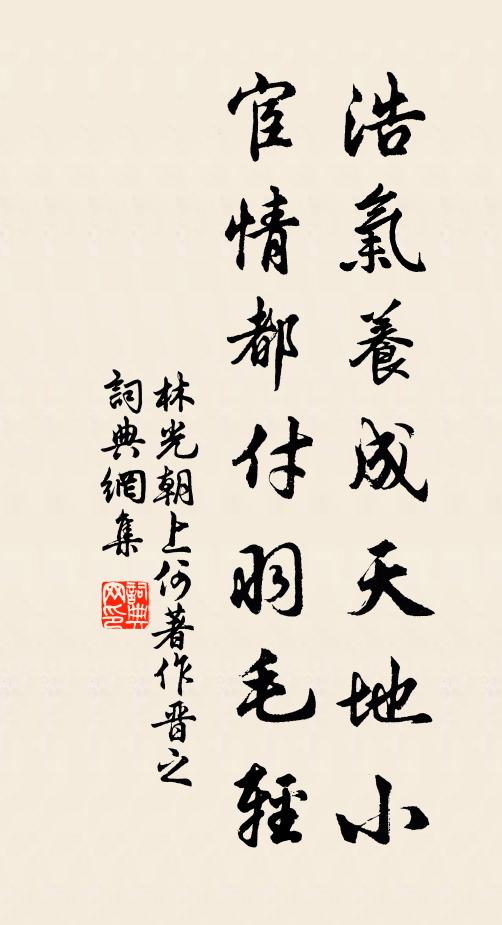 浩氣養成天地小
宦情都付羽毛輕
林光朝上何著作晋之
詞典網集
詞典网印